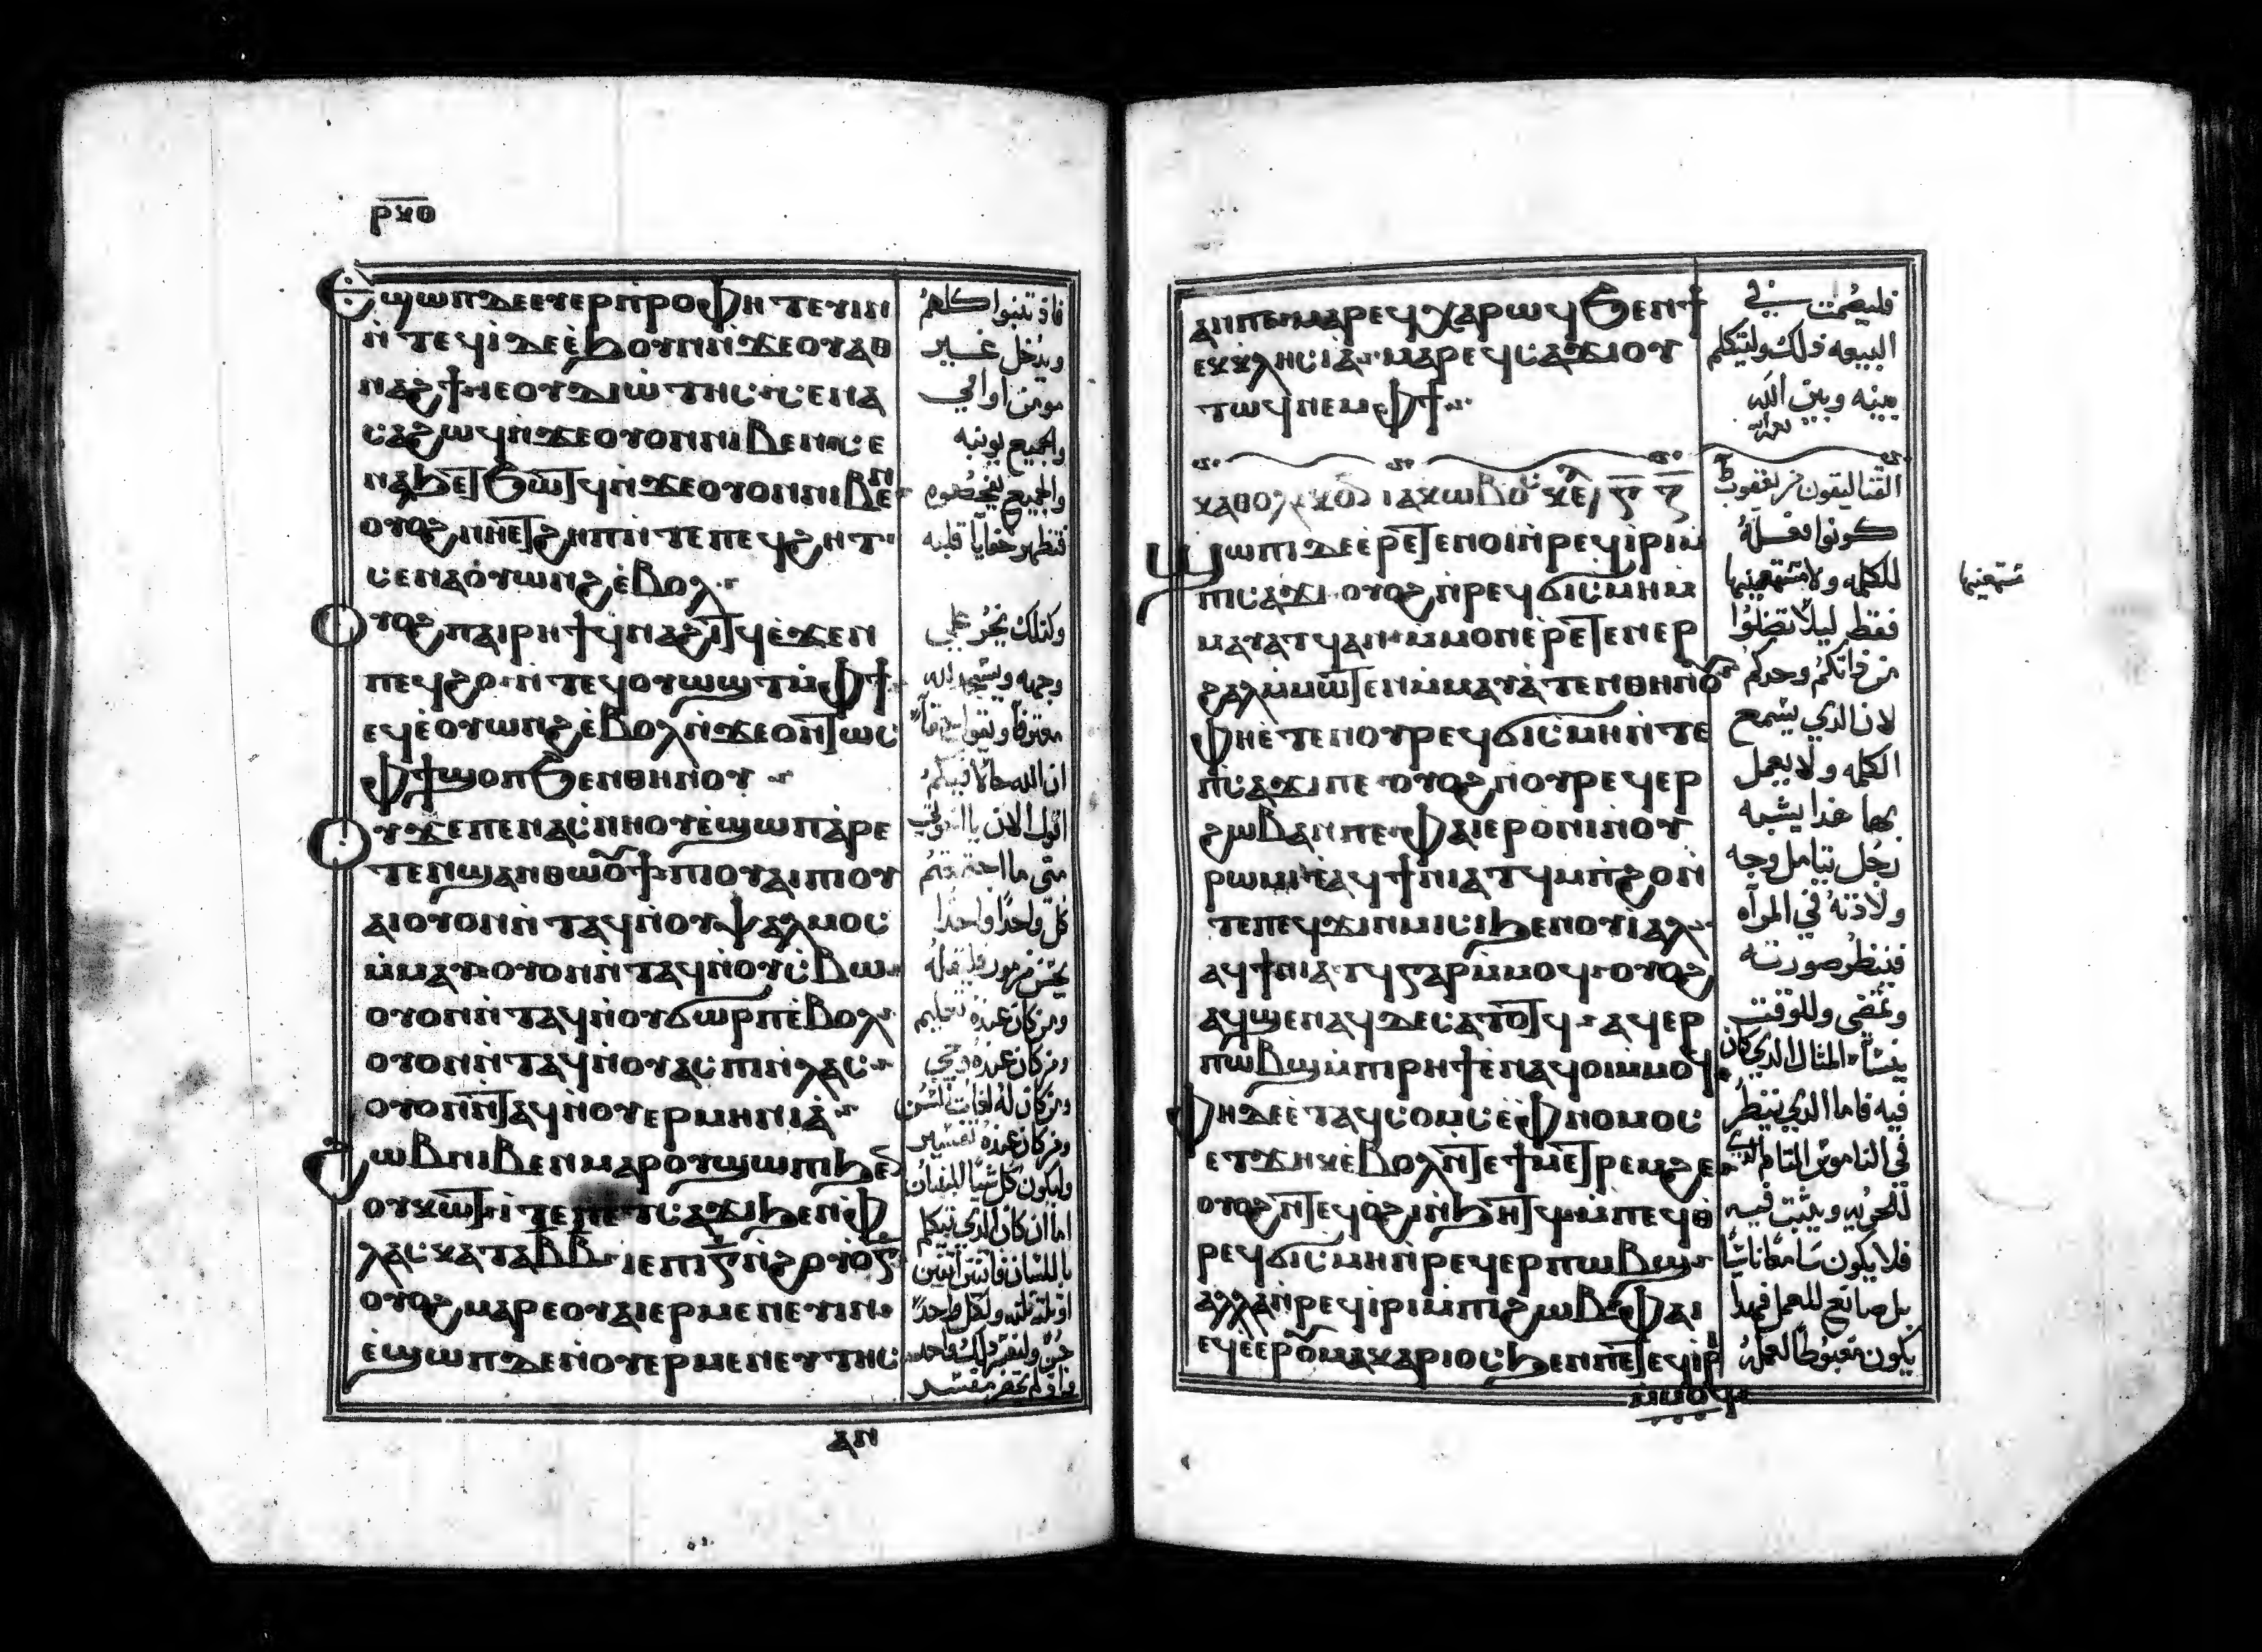 ⲣⲕⲑ
Ⲉϣⲱⲡⲇⲉⲉⲩⲉⲣⲡ̀ⲣⲟⲫⲏⲧⲉⲩⲓⲛ
ⲛ̀ⲧⲉϥⲓ̀ⲇⲉⲉ̀ϧⲟⲩⲛⲛ̀ϫⲉⲟⲩⲁⲑ
ⲛⲁϩϯⲓⲉⲟⲩⲇⲓⲱ̀ⲧⲏⲥⲥⲉⲛⲁ
ⲥⲁϩⲱϥⲛ̀ϫⲉⲟⲩⲟⲛⲛⲓⲃⲉⲛⲥⲉ
ⲛⲁϧⲉⲧϧⲱⲧϥⲛ̀ϫⲉⲟⲩⲟⲛⲛⲓⲃⲉⲛ
ⲟⲩⲟϩⲛⲏⲉⲧϩⲏⲡⲛ̀ⲧⲉⲡⲉϥϩⲏⲧ
ⲥⲉⲛⲁⲟ̀ⲩⲱⲛϩⲉ̀ⲃⲟⲗ
Ⲟⲩⲟϩⲡⲁⲓⲣⲏϯϥⲛⲁϩⲓⲧϥⲉ̀ϫⲉⲛ
ⲡⲉϥϩⲟⲛ̀ⲧⲉϥⲟⲩⲱϣⲧⲙ̀ⲫϯ
ⲉϥⲉ̀ⲟⲩⲱⲛϩⲉ̀ⲃⲟⲗⲛ̀ϫⲉⲟⲛⲧⲱⲥ
ⲫϯϣⲟⲡϧⲉⲛⲑⲏⲛⲟⲩ
Ⲟⲩϫⲉⲡⲉⲛⲁⲥⲛⲏⲟⲩⲉ̀ϣⲱⲡⲁ̀ⲣⲉ
ⲧⲉⲛϣⲁⲛⲑⲱⲟⲩϯⲡⲓⲟⲩⲁⲓⲡⲓⲟⲩ
ⲁⲓⲟⲩⲟⲛⲛ̀ⲧⲁϥⲛ̀ⲟⲩⲯⲁⲗⲙⲟⲥ
ⲙ̀ⲙⲁⲩⲟⲩⲟⲛⲛ̀ⲧⲁϥⲛ̀ⲟⲩⲥ̀ⲃⲱ
ⲟⲩⲟⲛⲛ̀ⲧⲁϥⲛ̀ⲟⲩϭⲱⲣⲡⲉ̀ⲃⲟⲗ
ⲟⲩⲟⲛⲛ̀ⲧⲁϥⲛ̀ⲟⲩⲁⲥⲡⲓⲛ̀ⲗⲁⲥ
ⲟⲩⲟⲛⲛ̀ⲧⲁϥⲛ̀ⲟⲩⲉⲣⲙⲏⲛⲓⲁ̀
Ϩⲱⲃⲛⲓⲃⲉⲛⲙⲁⲣⲟ̀ⲩϣⲱⲡⲓϧⲉⲛ
ⲟⲩⲕⲱⲧⲓ̀ⲧⲉⲡⲉⲧⲥⲁϫⲓϧⲉⲛⲫ
ⲗⲁⲥⲕⲁⲧⲁⲃⲃⲓⲉⲡⲓⲅ̅ⲛ̀ϩⲟⲩⲟⲅ̅
ⲟⲩⲟϩⲙⲁⲣⲉⲟⲩⲁⲓⲉⲣⲙⲉⲛⲉⲩⲓⲛ
ⲉ̀ϣⲱⲡⲇⲉⲛ̀ⲟⲩⲉⲣⲙⲉⲛⲉⲩⲧⲏⲥ
ⲁⲛ
فاذ تنبوا كلهم
ويدخل غير
مومن او امي
والجميع يوبنه
والجميع يفحصوه
فتظهر خفايا قلبه
وكذلك يخر على
وجهه ويسجد لله
ان الله حالا فيكم
متى ما اجتمعتم
كل واحدا واحدا
ومن كان عنده تعليم
ومن كان عنده وحي
ومن كان عنده تفسير
وليكون كل شيا للبنيان
اما ان كان الذي يتكلم
باللسان فاثنين اثنين
ⲁⲛⲡⲉⲙⲁⲣⲉϥⲭⲁⲣⲱϥϧⲉⲛϯ
ⲉⲕⲕⲗⲏⲥⲓⲁ̀ⲙⲁⲣⲉϥⲥⲁϫⲓⲟⲩ
ⲧⲱϥⲛⲉⲙⲫϯ
ⲕⲁⲑⲟⲗⲓⲕⲟⲛ ⲓⲁⲕⲱⲃⲟⲥ ⲕⲉ
Ϣⲱⲡⲓⲇⲉⲉ̀ⲣⲉⲧⲉⲛⲟⲓⲛ̀ⲣⲉϥⲓ̀ⲣⲓⲙ̀
ⲡⲓⲥⲁϫⲓⲟⲩⲟϩⲛ̀ⲣⲉϥϭⲓⲥⲙⲏⲙ̀
ⲙⲁⲩⲁⲧϥⲁⲛⲙ̀ⲙⲟⲛⲉ̀ⲣⲉⲧⲉⲛⲉⲣ
ϩⲁⲗⲙ̀ⲙⲱⲧⲉⲛⲙ̀ⲙⲁⲩⲁ̀ⲧⲉⲛⲑⲏⲛⲟⲩ
Ⲫⲏⲉ̀ⲧⲉⲛⲟⲩⲣⲉϥϭⲓⲥⲙⲏⲛ̀ⲧⲉ
ⲡ̀ⲥⲁϫⲓⲡⲉⲟⲩⲟϩⲛ̀ⲟⲩⲣⲉϥⲉⲣ
ϩⲱⲃⲁⲛⲡⲉⲫⲁⲓⲉⲣⲟⲛⲓⲛⲟⲩ
ⲣⲱⲙⲓⲉ̀ⲁϥϯⲛⲓⲁⲧϥⲙ̀ⲡ̀ϩⲟⲛ̀
ⲧⲉⲡⲉϥϫⲓⲛⲙⲓⲥⲓϧⲉⲛⲟⲩⲓⲁⲗ
ⲁϥϯⲛⲓⲁⲧϥⲅⲁⲣⲙ̀ⲙⲟϥⲟⲩⲟϩ
ⲁϥϣⲉⲛⲁϥⲇⲉⲥⲁⲧⲟⲧϥⲁϥⲉⲣ
ⲡⲱⲃϣⲙ̀ⲡⲓⲣⲏϯⲉⲛⲁϥⲟⲓⲙ̀ⲙⲟϥ
Ⲫⲏⲇⲉⲉ̀ⲧⲁϥⲥⲟⲙⲥⲉ̀ⲫⲛⲟⲙⲟⲥ
ⲉⲧϫⲏⲕⲉ̀ⲃⲟⲗⲛ̀ⲧⲉϯⲙⲉⲧⲣⲉⲙϩⲉ
ⲟⲩⲟϩⲛ̀ⲧⲉϥⲟ̀ϩⲓⲛ̀ϧⲏⲧϥⲙ̀ⲡⲉϥⲑ
ⲣⲉϥϭⲓⲥⲙⲏⲛ̀ⲣⲉϥⲉⲣⲡⲱⲃϣ
ⲁⲗⲗⲁⲛ̀ⲣⲉϥⲓ̀ⲣⲓⲙ̀ⲡⲓϩⲱⲃⲫⲁⲓ
ⲉϥⲉ̀ⲉⲣⲟⲩⲙⲁⲕⲁⲣⲓⲟⲥϧⲉⲛⲡⲉⲧⲉϥⲓⲣⲓ
ⲙ̀ⲙⲟϥ
فليصمت في
البيعه ذلك وليتكلم
بينه وبين الله
القتاليقون من يعقوب
كونوا فعله
للكلمه ولا مستمعينها
فقط ليلا تضلوا
من ذاتكم وحدكم
لان الذي يسمع
الكلمه ولا يعمل
بها هذا يشبه
رجل يتامل وجه
ولادته في المراه
فينظر صورته
ويمضي وللوقت
ينسا المثال الذي كان
فيه فاما الذي ينظر
في الناموس التام الذي
للحريه ويثبت فيه
فلا يكون سامعا ناسيا
بل صانع للعمل فهذا
يكون مغبوطا لعمله